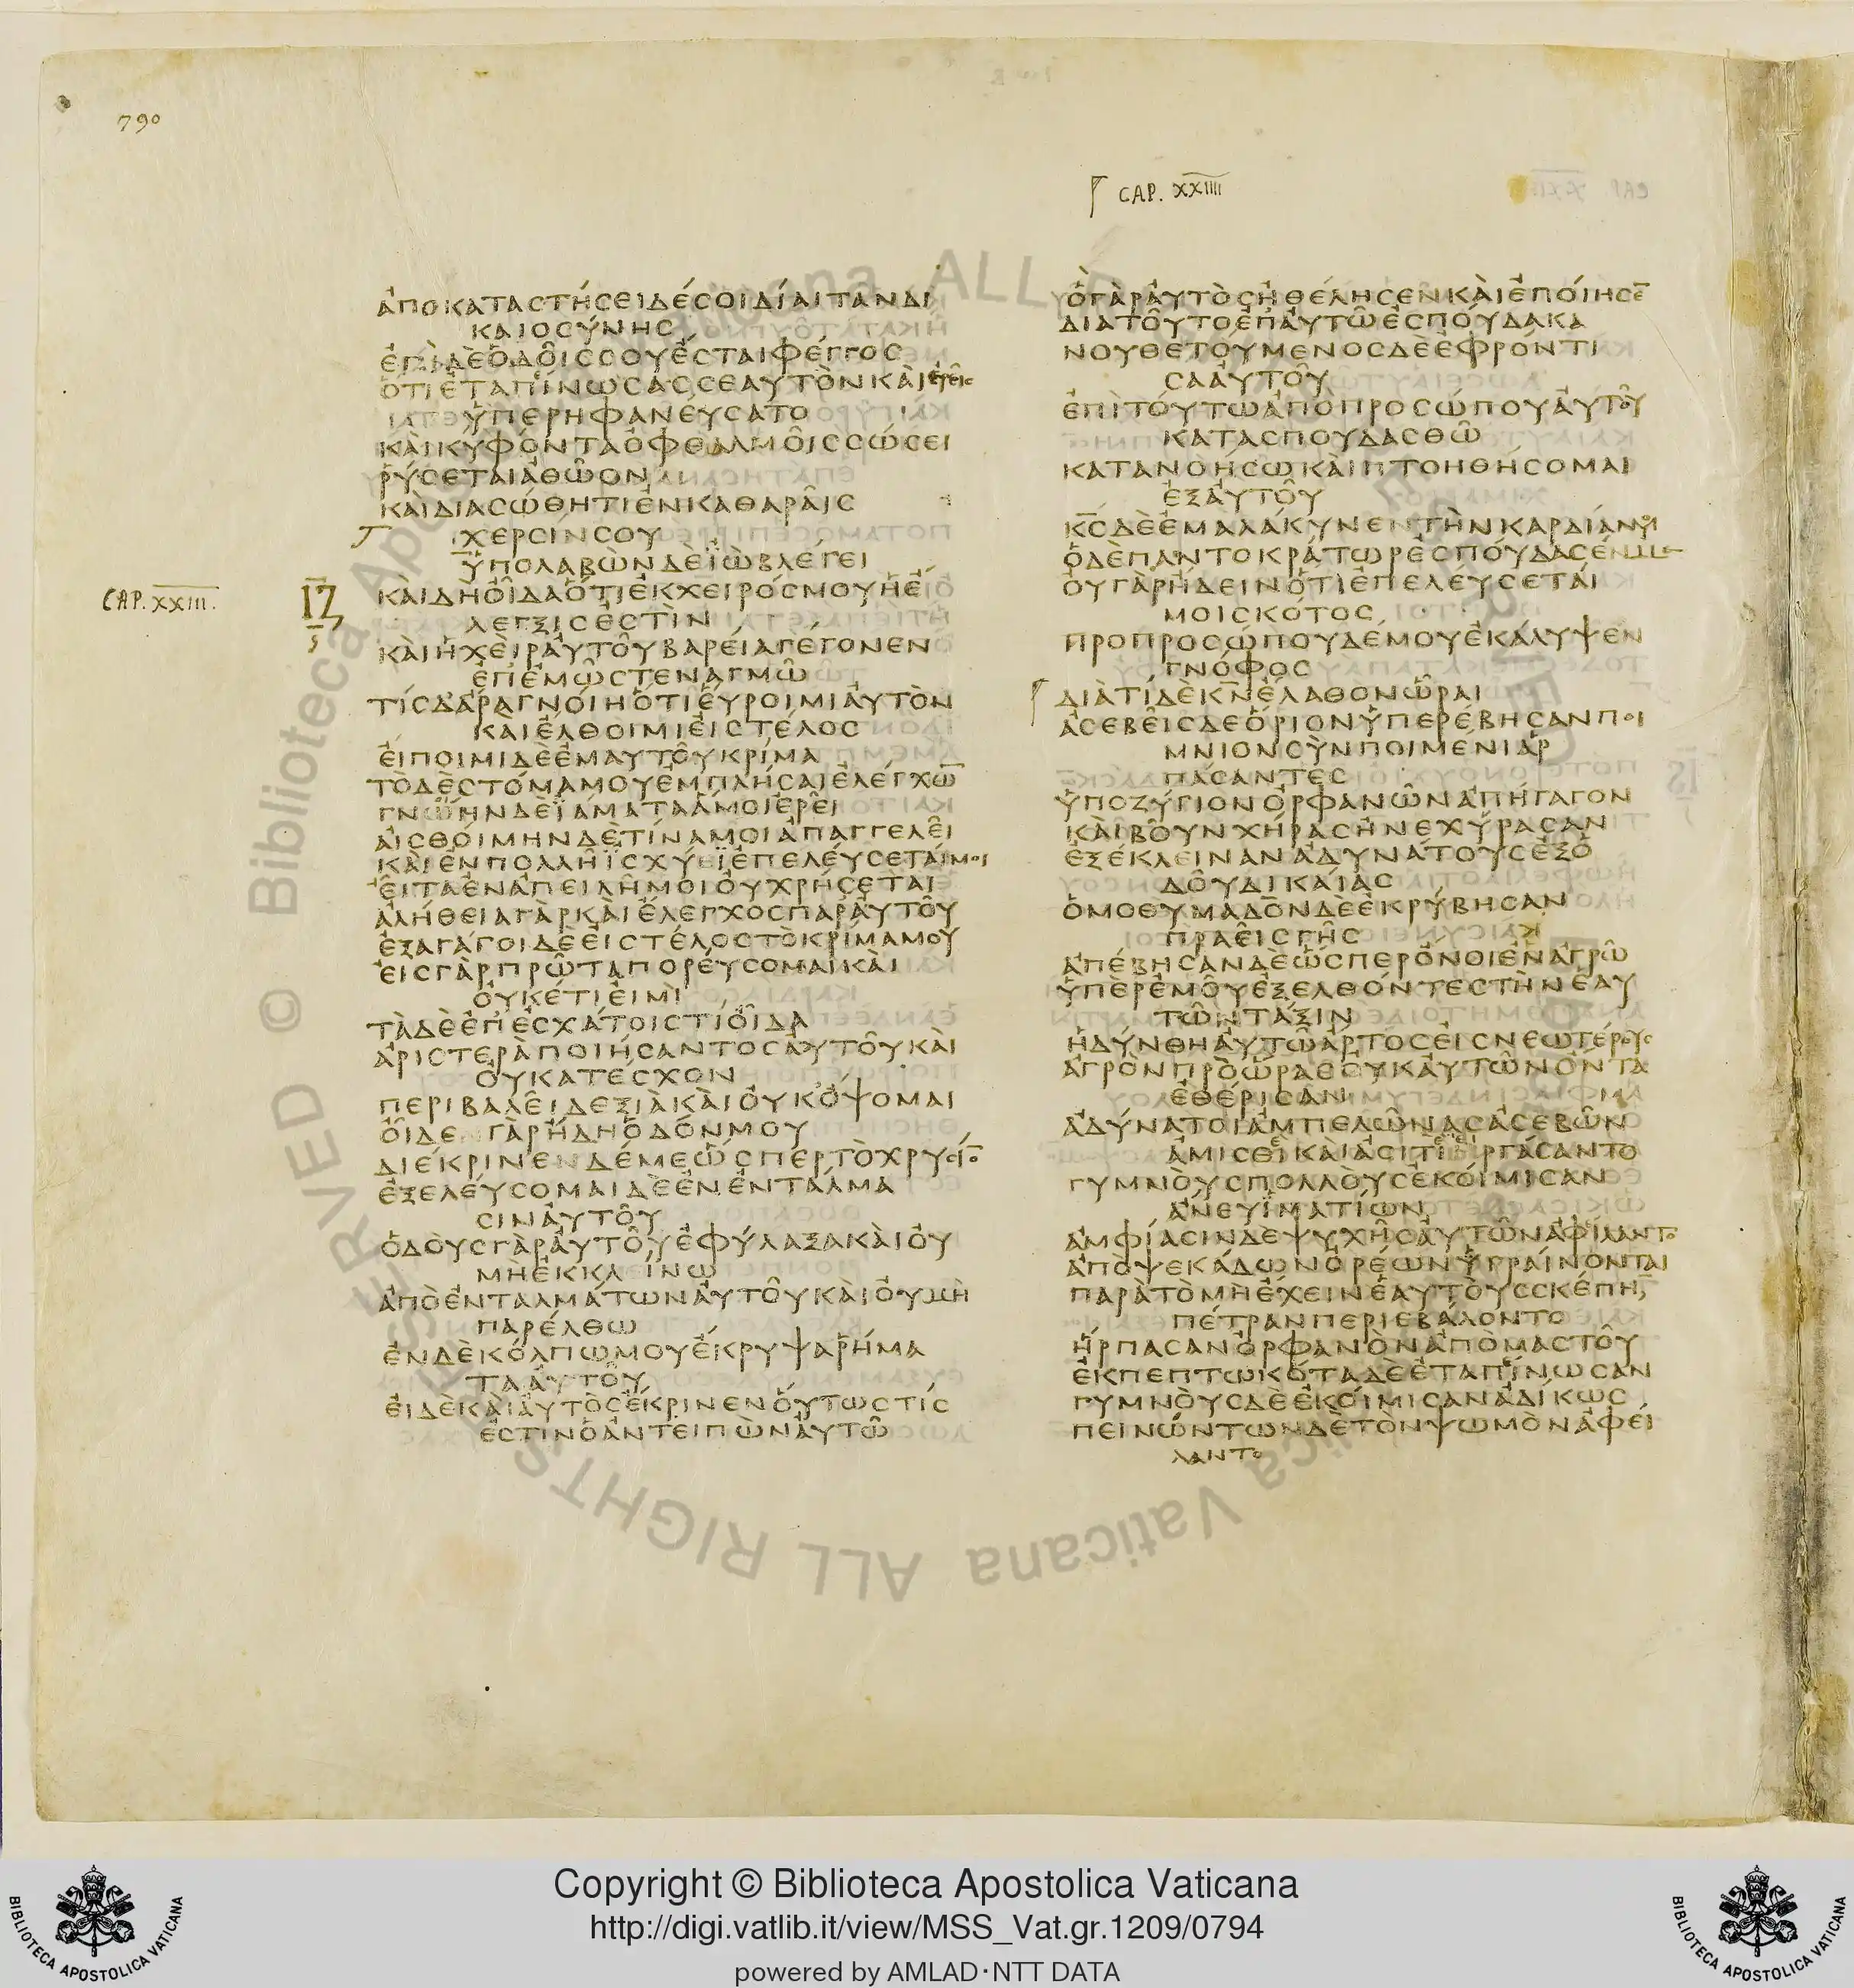 790
CAP. XXIIII
ἀποκαταστήσει δέ σοι δίαιταν δι
καιοσύνης
ἐπὶ δὲ ὁδοῖς σου ἔσται φέγγος
ὅτι ἐταπίνωσας σεαυτὸν καὶ ἐρεῖς
ὑπερηφανεύσατο
καὶ κύφοντα ὀφθαλμοῖς σώσει
ῥύσεται ἀθῶον
καὶ διασώθητι ἐν καθαραῖς
χερσίν σου
ὑπολαβὼν δὲ ϊὼβ λέγει
CAP. XXIII.
ΙΖ
καὶ δὴ οἶδα ὅτι ἐκ χειρός μου ἡ ἔ
λεγξίς ἐστὶν
καὶ ἡ χεὶρ αὐτοῦ βαρεῖα γέγονεν
ἐπ ἐμῶ στεναγμῶ
τίς δ ἄρα γνοίη ὅτι εὕροιμι αὐτὸν
καὶ ἔλθοιμι εἰς τέλος
εἴποιμι δὲ ἐμαυτοῦ κρίμα
τὸ δὲ στόμα μου ἐμπλήσαι ἐλέγχω̅
γνῴην δὲ ϊάματα ἅ μοι ἐρεῖ
αἰσθοίμην δὲ τίνα μοι ἀπαγγελεῖ
καὶ ἐν πολλῇ ϊσχύει ἐπελεύσεταί μοι
εἶτα ἐν ἀπειλῇ μοι οὐ χρήσεται
ἀλήθεια γὰρ καὶ ἔλεγχος παρ αὐτοῦ
ἐξαγάγοι δὲ εἰς τέλος τὸ κρίμα μου
εἰς γὰρ πρῶτα πορεύσομαι καὶ
οὐκέτι εἰμὶ
τὰ δὲ ἐπ ἐσχάτοις τί οἶδα
ἀριστερὰ ποιήσαντος αὐτοῦ καὶ
οὐ κατέσχον
περιβαλεῖ δεξιὰ καὶ οὐκ ὄψομαι
οἶδε γὰρ ἤδη ὁδόν μου
διέκρινεν δέ με ὥσπερ τὸ χρυσίο̅
ἐξελεύσομαι δὲ ἐν ἐντάλμα
σιν αὐτοῦ
ὁδοὺς γὰρ αὐτοῦ ἐφύλαξα καὶ οὐ
μὴ ἐκκλίνω
ἀπὸ ἐνταλμάτων αὐτοῦ καὶ οὐ μὴ
παρέλθω
ἐν δὲ κόλπω μου ἔκρυψα ῥήμα
τα αὐτοῦ
εἰ δὲ καὶ αὐτὸς ἔκρινεν οὕτως τίς
ἐστιν ὁ ἀντειπὼν αὐτῶ
ὃ γὰρ αὐτὸς ἠθέλησεν καὶ ἐποίησε̅
διατοῦτο ἐπ αὐτῶ ἐσπούδακα
νουθετούμενος δὲ ἐφρόντι
σα αὐτοῦ
ἐπὶ τούτω ἀπὸ προσώπου αὐτοῦ
κατασπουδασθῶ
κατανοήσω καὶ πτοηθήσομαι
ἐξ αὐτοῦ
κ̅ς̅ δὲ ἐμαλάκυνεν τὴν καρδίαν μου
ὁ δὲ παντοκράτωρ ἐσπούδασέν με
οὐ γὰρ ἤδειν ὅτι ἐπελεύσεταί
μοι σκότος
πρὸ προσώπου δέ μου ἐκάλυψεν
γνόφος
διὰ τί δὲ κ̅ν̅ ἔλαθον ὧραι
ἀσεβεῖς δὲ ὅριον ὑπερέβησαν ποί
μνιον σὺν ποιμένι ἁρ
πάσαντες
ὑποζύγιον ὀρφανῶν ἀπήγαγον
καὶ βοῦν χήρας ἠνεχύρασαν
ἐξέκλειναν ἀδυνάτους ἐξ ὁ
δοῦ δικαίας
ὁμοθυμαδὸν δὲ ἐκρύβησαν
πραεῖς γῆς
ἀπέβησαν δὲ ὥσπερ ὄνοι ἐν ἀγρῶ
ὑπὲρ ἐμοῦ ἐξελθόντες τὴν ἑαυ
τῶν τάξιν
ἡδύνθη αὐτῶ ἄρτος εἰς νεωτέρους
ἀγρὸν πρὸ ὥρας οὐκ αὐτῶν ὄντα
ἐθέρισαν
ἀδύνατοι ἀμπελῶνας ἀσεβῶν
ἀμισθὶ καὶ ἀσιτὶ εἰργάσαντο
γυμνοὺς πολλοὺς ἐκοίμισαν
ἄνευ ϊματίων
ἀμφίασιν δὲ ψυχῆς αὐτῶν ἀφίλαντο
ἀπὸ ψεκάδων ὀρέων ὑγραίνονται
παρὰ τὸ μὴ ἔχειν ἑαυτοὺς σκέπη̅
πέτραν περιεβάλοντο
ἥρπασαν ὀρφανὸν ἀπὸ μαστοῦ
ἐκπεπτωκότα δὲ ἐταπίνωσαν
γυμνοὺς δὲ ἐκοίμισαν ἀδίκως
πεινώντων δὲ τὸν ψωμὸν ἀφεί
λαντο
Copyright © Biblioteca Apostolica Vaticana
http://digi.vatlib.it/view/MSS_Vat.gr.1209/0794
powered by AMLAD·NTT DATA
BIBLIOTECA APOSTOLICA VATICANA
BIBLIOTECA APOSTOLICA VATICANA